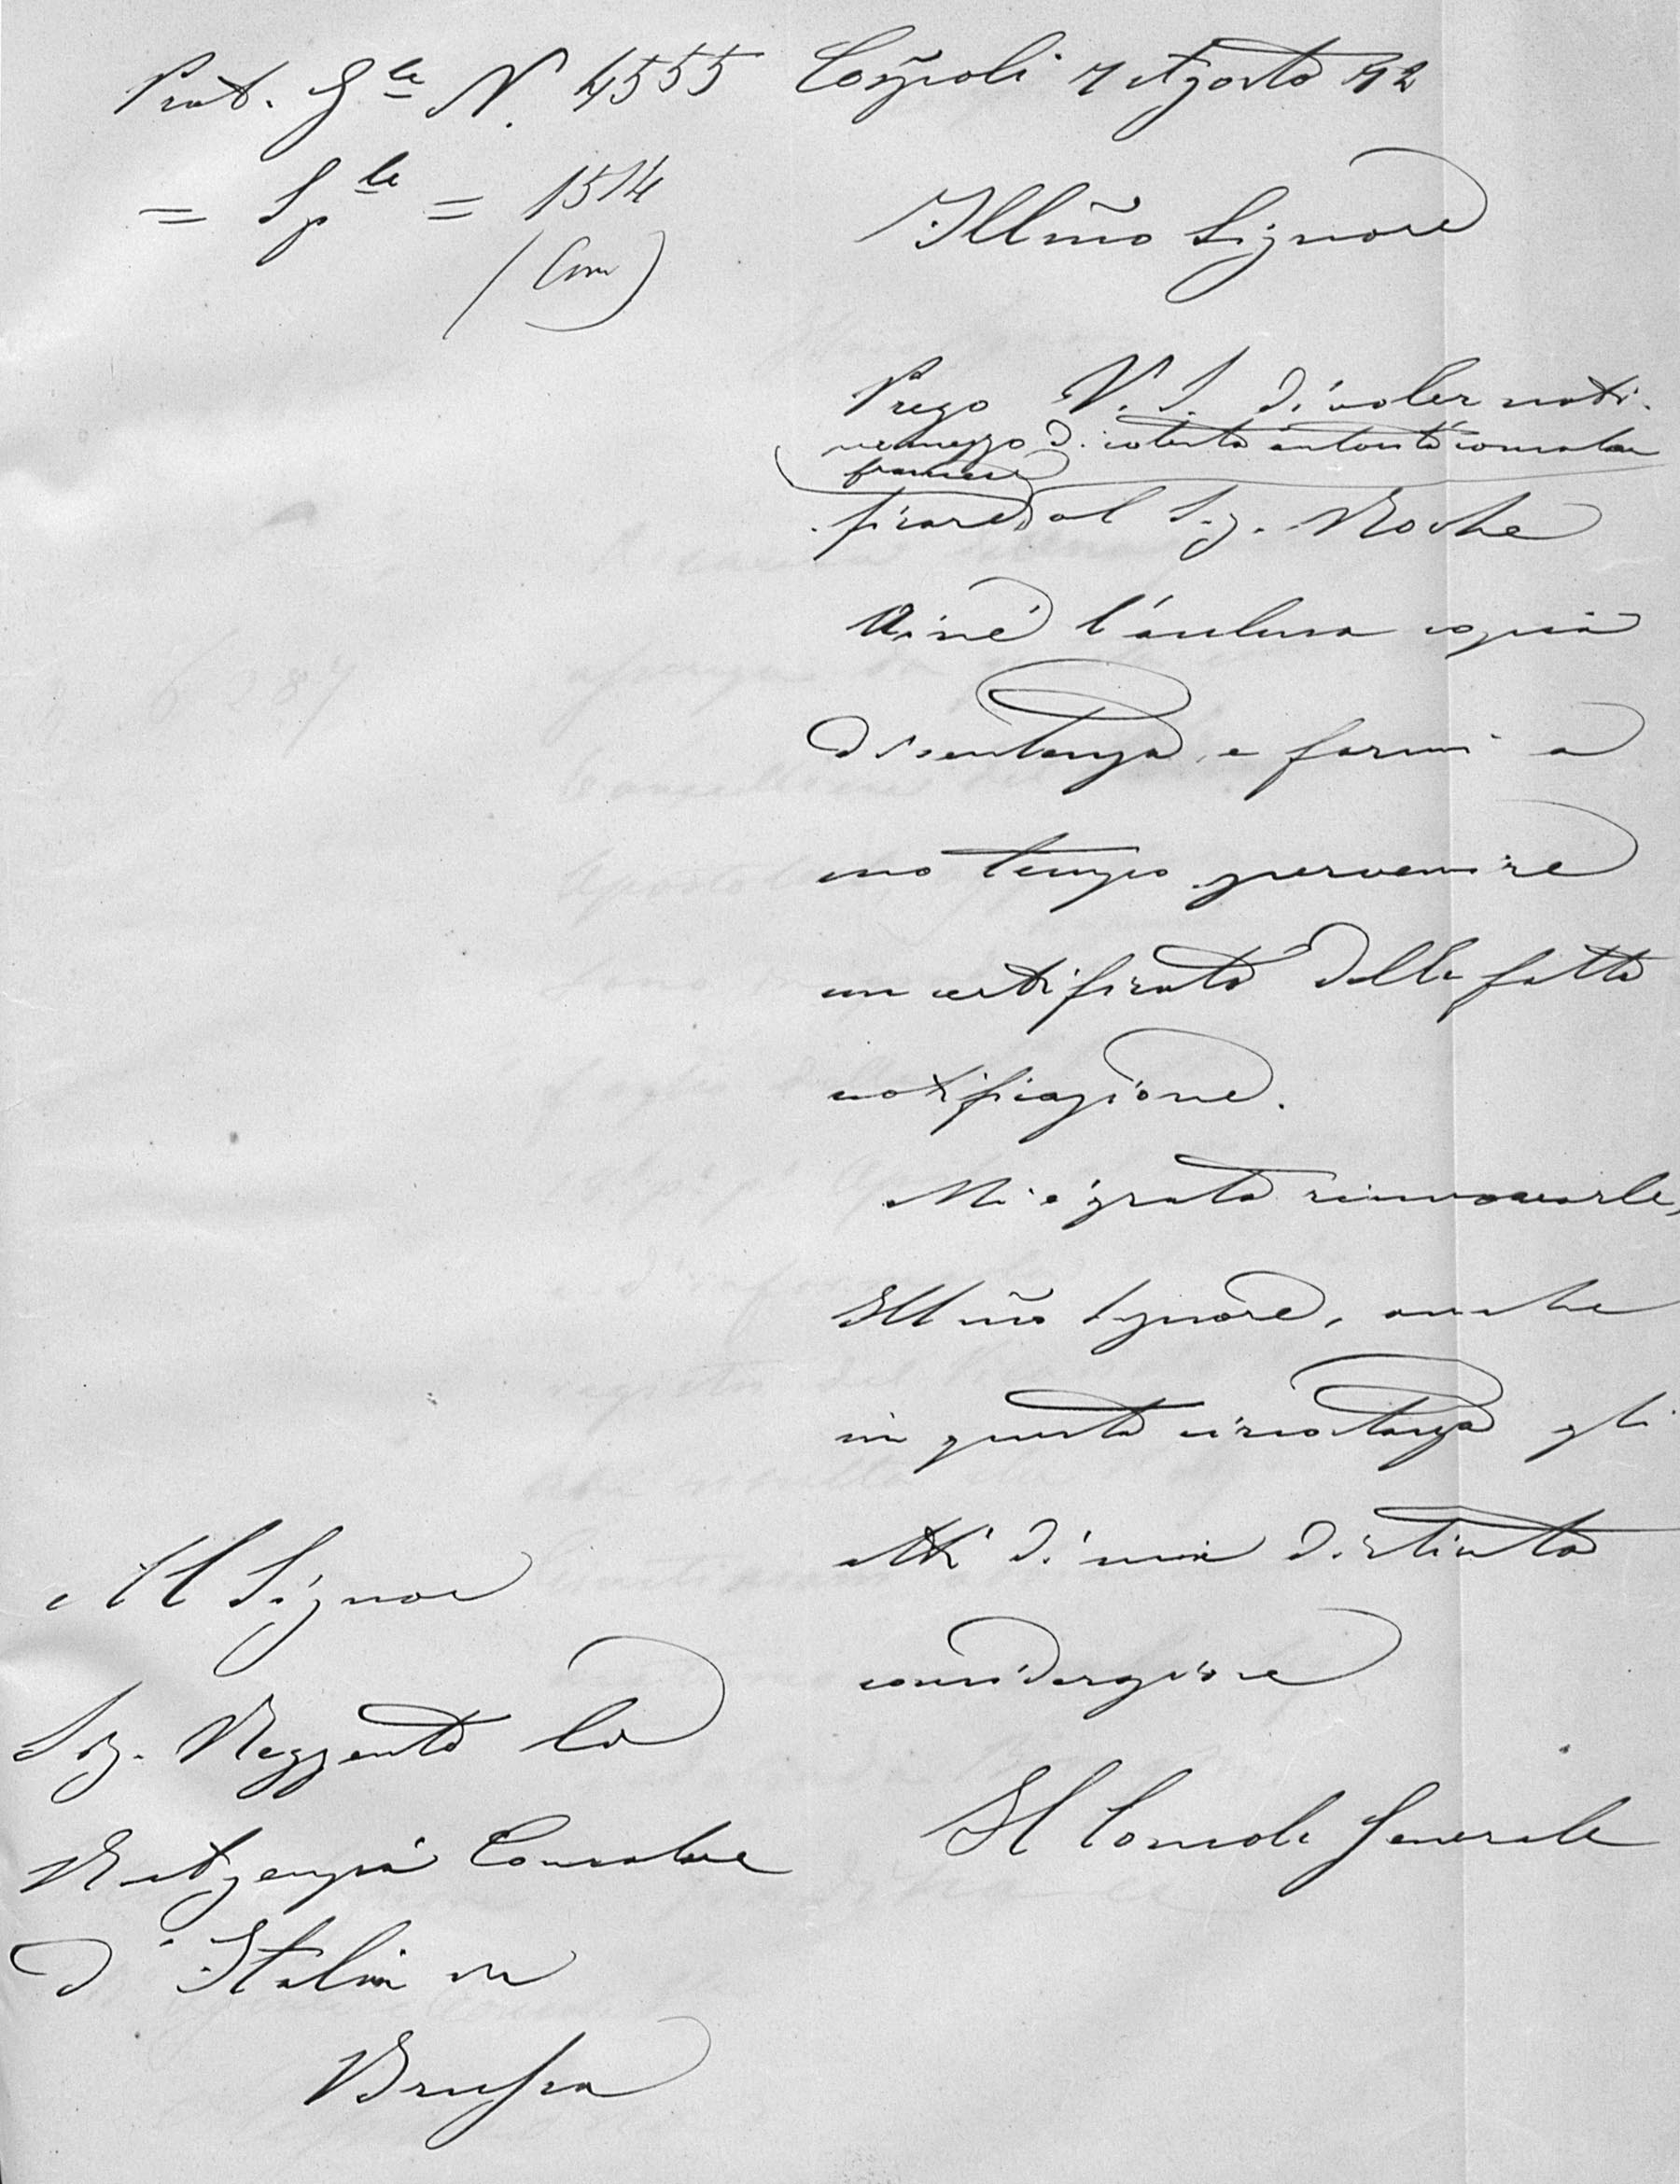 Prot. Gle N. 4555
= Sple = 1514
(Com)
Cospoli 7 Agosto 92
Illmo Signore
Prego V. S. di voler noti-
per mezzo di cotesta autorità consolare
francese
ficare al Sig. Roche
Aimé l'acclusa copia
di sentenza, e farmi a
suo tempo pervenire
un certificato della fatta
notificazione.
Mi è grato rinnovarle,
Illmo Signore, anche
in questa circostanza gli
atti di mia distinta
considerazione
Il Console Generale
Al Signor
Sig. Reggente la
R. Agenzia Consolare
d'Italia in
Brussa